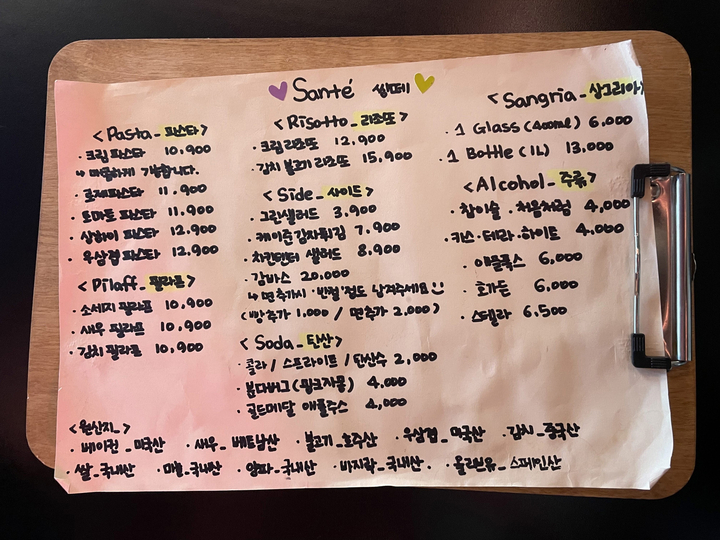 Santé 쌍떼
< Pasta_파스타 >
· 크림 파스타 10,900
↳ 매콤하게 가능합니다.
· 로제파스타 11,900
· 토마토 파스타 11,900
· 상하이 파스타 12,900
· 우삼겹 파스타 12,900
< Pilaff_필라프 >
· 소세지 필라프 10,900
· 새우 필라프 10,900
· 김치 필라프 10,900
< Risotto_리조또 >
· 크림 리조또 12,900
· 김치 불고기 리조또 15,900
< Side_사이드 >
· 그린샐러드 3,900
· 케이준 감자튀김 7,900
· 치킨텐더 샐러드 8,900
· 감바스 20,000
↳ 면 추가시 · 반절 정도 남겨주세요
(빵추가 1,000 / 면추가 2,000)
< Soda_탄산 >
· 콜라 / 스프라이트 / 탄산수 2,000
· 봄다버그 (핑크자몽) 4,000
· 골드메달 애플주스 4,000
< Sangria_상그리아 >
· 1 Glass (400ml) 6,000
· 1 Bottle (1L) 13,000
< Alcohol_주류 >
· 참이슬 · 처음처럼 4,000
· 키스 · 테라 · 하이트 4,000
· 애플폭스 6,000
· 호가든 6,000
· 스텔라 6,500
< 원산지 >
· 베이컨_미국산 · 새우_베트남산 · 불고기_호주산 · 우삼겹_미국산 · 김치_중국산
· 쌀_국내산 · 마늘_국내산 · 양파_국내산 · 바지락_국내산 · 올리브유_스페인산